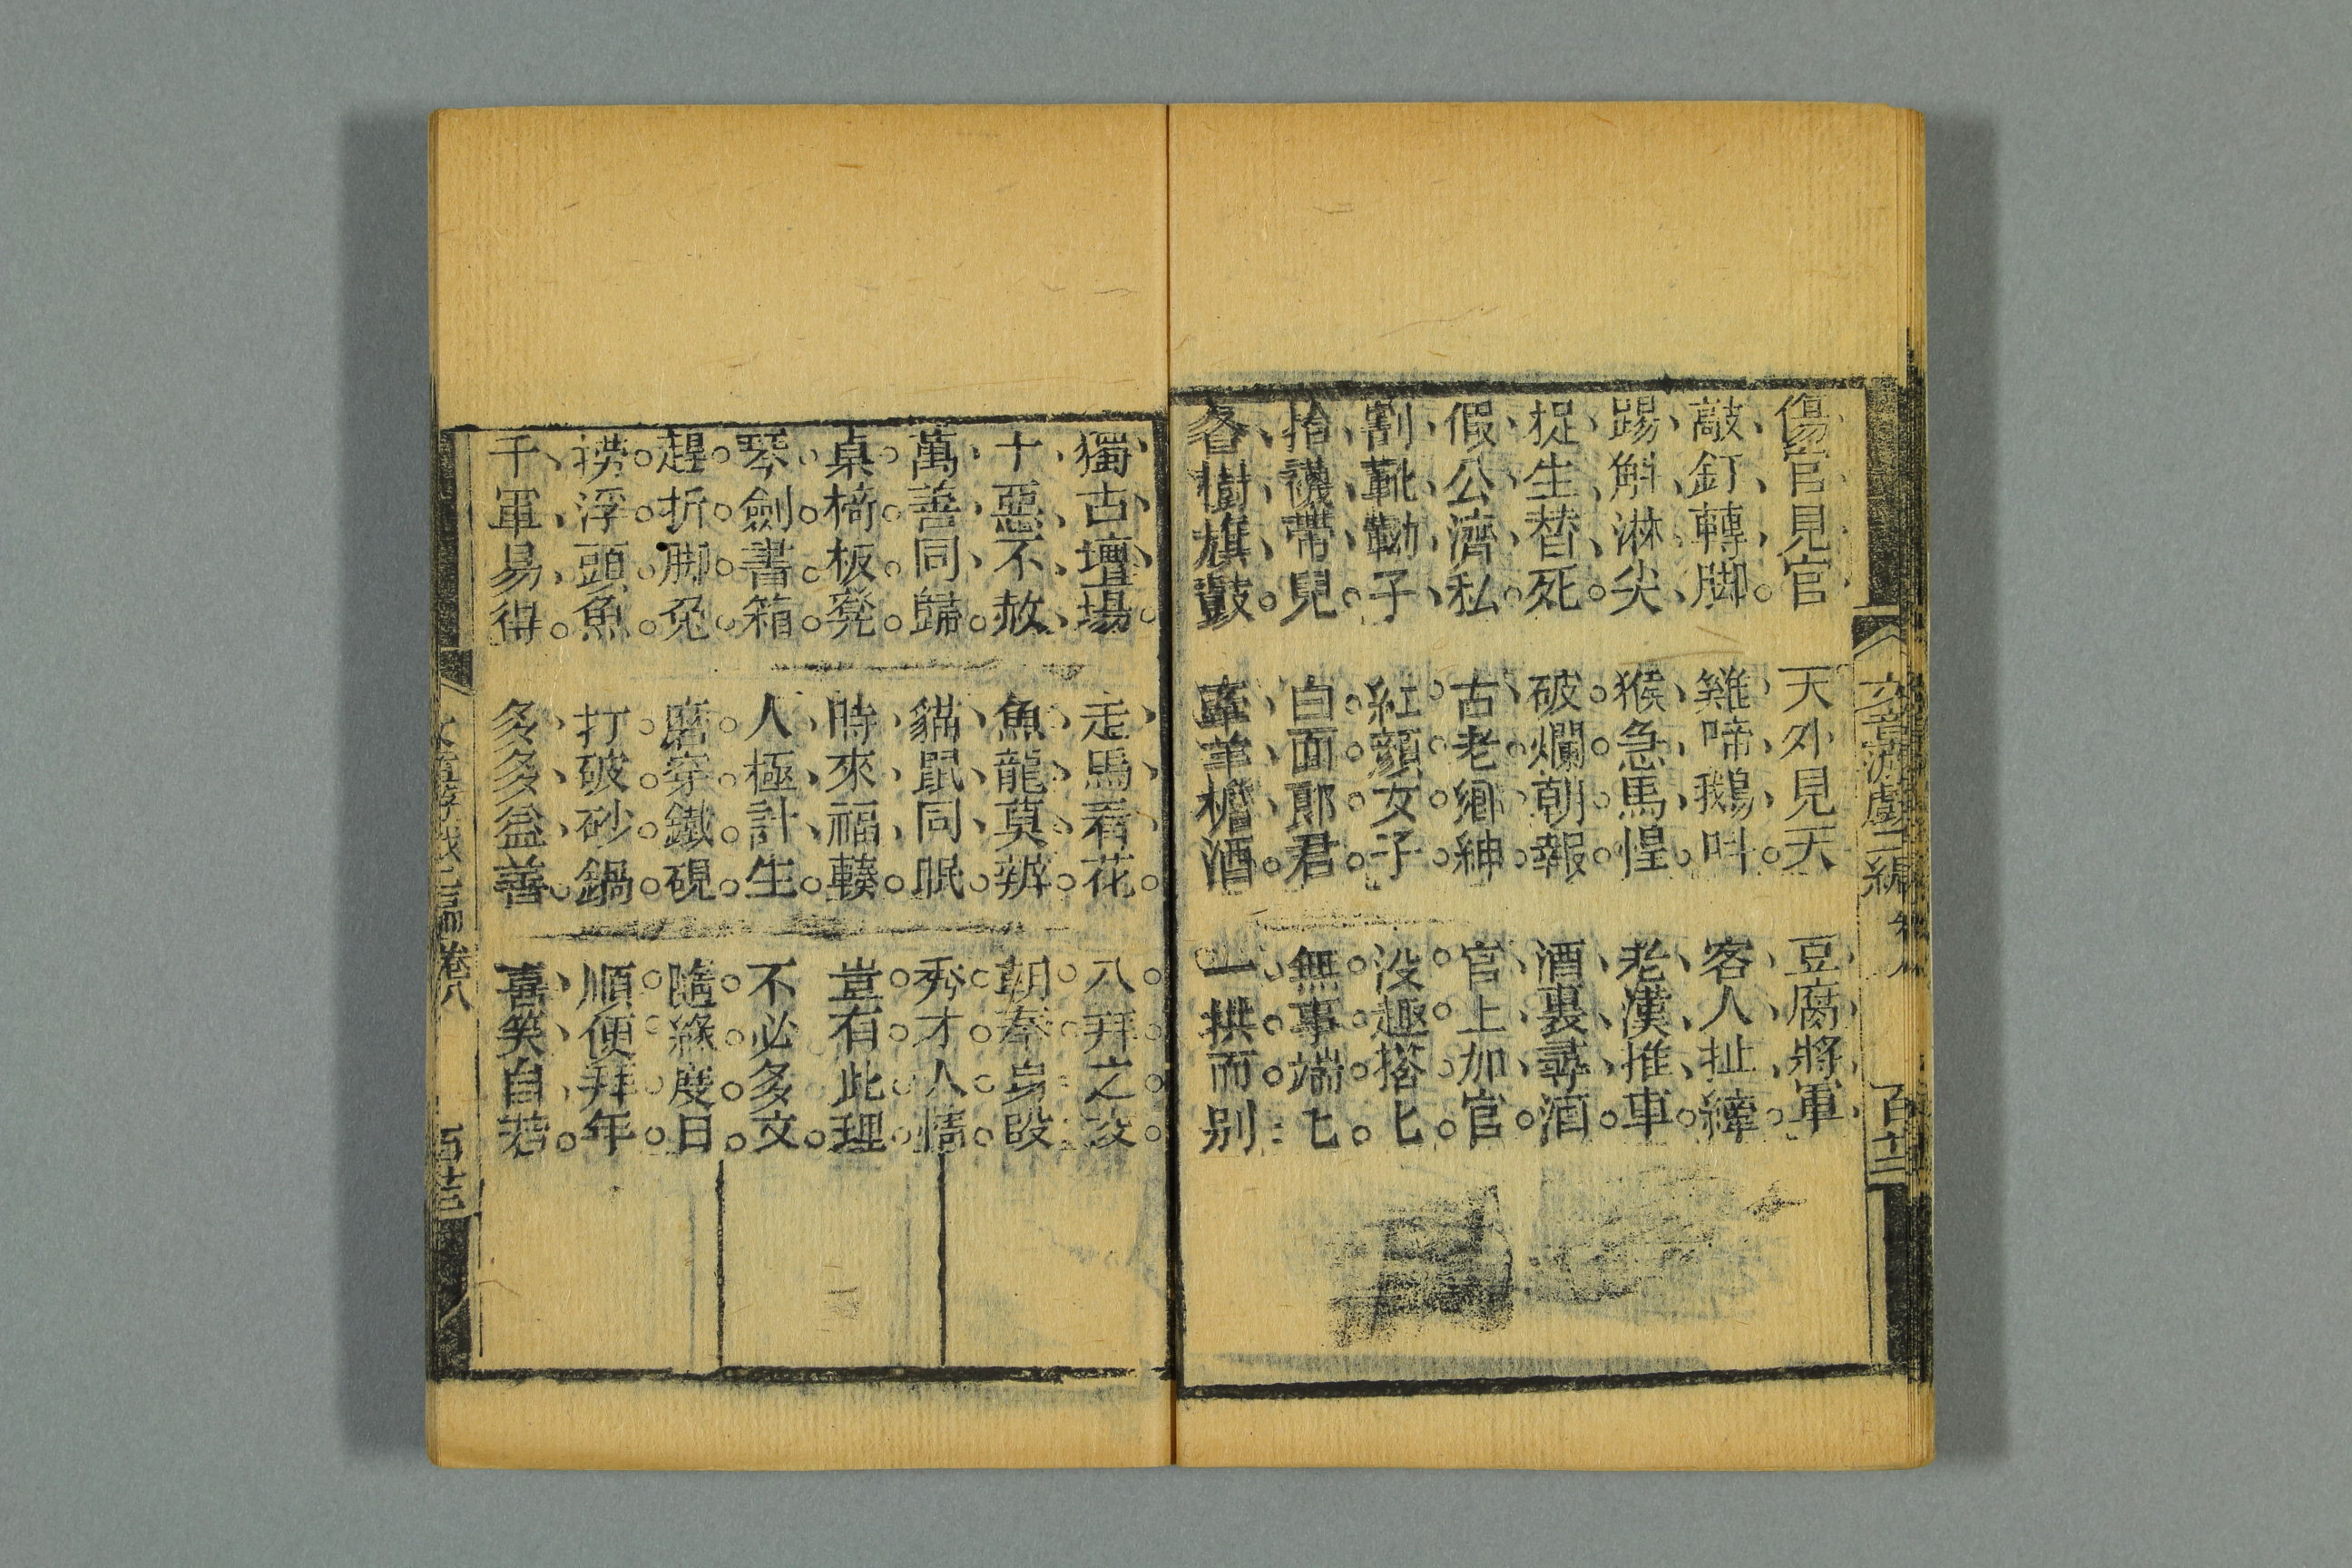 傷官見官 天外見天 豆腐將軍
敲釘轉脚 雞啼鵝叫 客人扯縴
踢斛淋尖 猴急馬惶 老漢推車
捉生替死 破爛朝報 酒裏尋酒
假公濟私 古老鄉紳 官上加官
割靴靿子 紅顔女子 没趣搭匕
拾襪帶兒 白面郎君 無事端匕
各樹旗鼓 牽羊檐酒 一拱而别
獨古壇場 走馬看花 八拜之交
十惡不赦 魚龍莫辨 朝奉身段
萬善同歸 貓鼠同眠 秀才人情
桌椅板凳 時來福輳 豈有此理
琴劍書箱 人極計生 不必多文
趕折脚兔 磨穿鐵硯 隨緣度日
撈浮頭魚 打破砂鍋 順便拜年
千軍易得 多多益善 喜笑自若
文章游戲二編 卷八
卷八